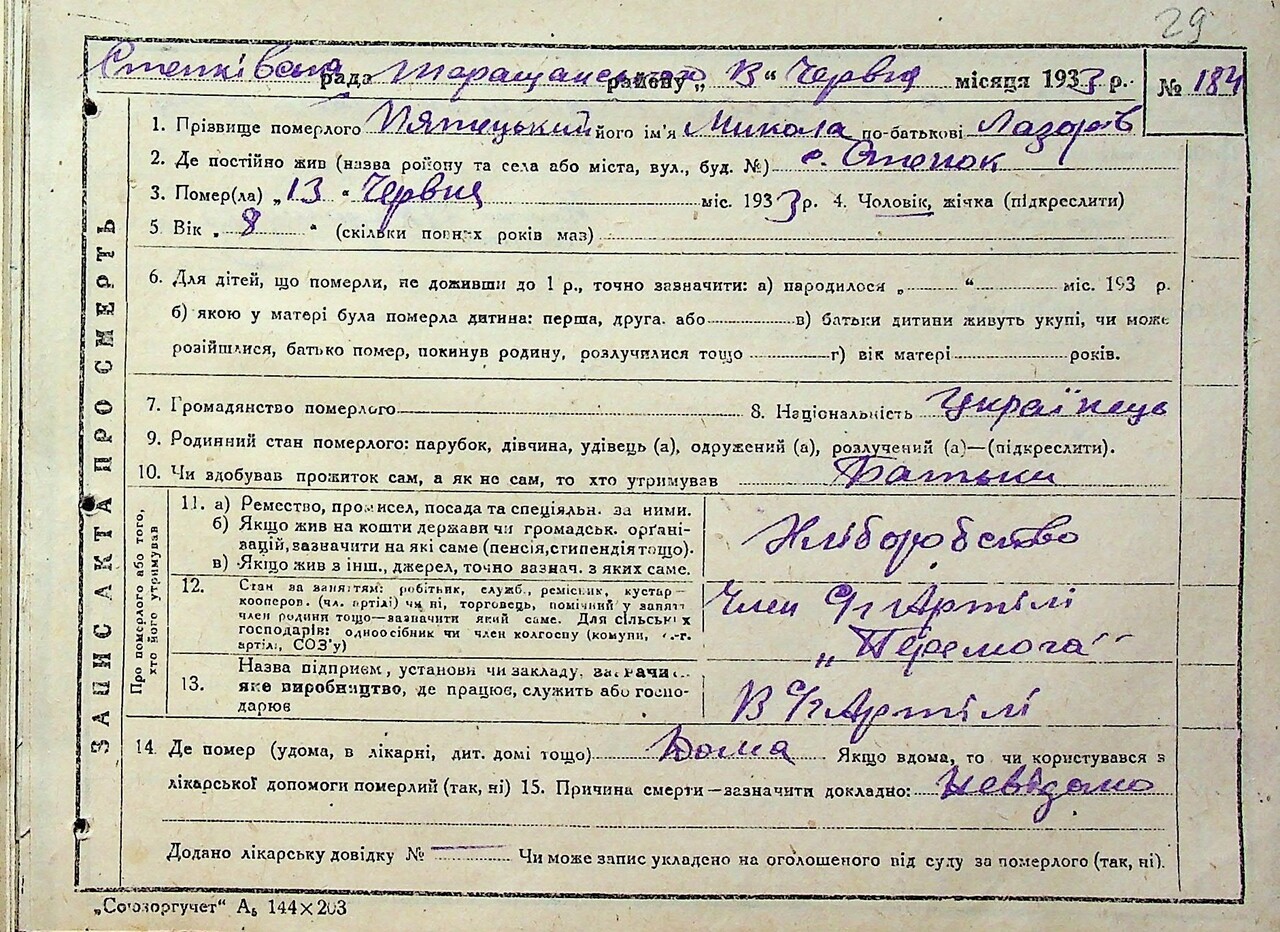 29
Степківська рада Таращанського району „13“ Червня місяця 1933 р. № 184
ЗАПИС АКТА ПРО СМЕРТЬ
1. Прізвище померлого Пятецький його ім'я Микола по-батькові Лазорів
2. Де постійно жив (назва ройону та села або міста, вул., буд. №) с. Степок
3. Помер(ла) „13“ Червня міс. 1933 р. 4. Чоловік, жічка (підкреслити)
5. Вік „8“ (скільки повних років маз)
6. Для дітей, що померли, не доживши до 1 р., точно зазначити: а) народилося „ “ міс. 193 р.
б) якою у матері була померла дитина: перша, друга. або в) батьки дитини живуть укупі, чи може
розійшлися, батько помер, покинув родину, розлучилися тощо г) вік матері років.
7. Громадянство померлого 8. Національність Українець
9. Родинний стан померлого: парубок, дівчина, удівець (а), одружений (а), розлучений (а)—(підкреслити).
10. Чи здобував прожиток сам, а як не сам, то хто утримував Батьки
Про померлого або того, хто його утримував
11. а) Ремество, промисел, посада та спеціяльн. за ними.
б) Якщо жив на кошти держави чи громадськ. орґані-
вацій, зазначити на які саме (пенсія, стипендія тощо).
в) Якщо жив з інш., джерел, точно зазнач. з яких саме.
Хліборобство
12. Стан за заняттям: робітник, служб., ремісник, кустар—
кооперов. (чл. артілі) чи ні, торговець, помічний у занятт
член родини тощо—зазначити який саме. Для сільських
господарів: одноосібник чи член колгоспу (комуни, с.-г.
артілі, СОЗ'у)
Член С/г Артілі
„Перемога“
13. Назва підприєм, установи чи закладу, зазначи..
яке виробництво, де працює, служить або госпо-
дарює
В С/г Артілі
14. Де помер (удома, в лікарні, дит. домі тощо) Дома Якщо вдома, то чи користувався з
лікарської допомоги померлий (так, ні) 15. Причина смерти—зазначити докладно: Невідомо
Додано лікарську довідку № Чи може запис укладено на оголошеного від суду за померлого (так, ні).
„Союзоргучет“ А₅ 144×203